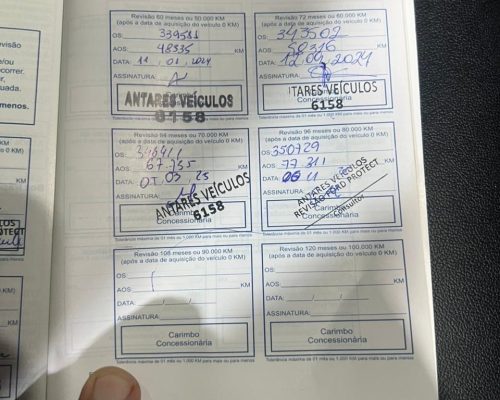 Revisão 60 meses ou 50.000 KM
(após a data de aquisição do veículo 0 KM)
OS: 339581
AOS: 48535 KM
DATA: 11 / 01 / 2024
ASSINATURA:
ANTARES VEÍCULOS
6158
Tolerância máxima de 01 mês ou 1.000 KM para mais ou para menos
Revisão 72 meses ou 60.000 KM
(após a data de aquisição do veículo 0 KM)
OS: 343502
AOS: 58316 KM
DATA: 12.09.2024
ASSINATURA:
TARES VEÍCULOS
6158
Concessionária
Tolerância máxima de 01 mês ou 1.000 KM para mais ou para menos
Revisão 84 meses ou 70.000 KM
(após a data de aquisição do veículo 0 KM)
OS:
AOS: KM
DATA: 07 03 25
ASSINATURA:
ANTARES VEÍCULOS
6158
Carimbo
Concessionária
Tolerância máxima de 01 mês ou 1.000 KM para mais ou para menos
Revisão 96 meses ou 80.000 KM
(após a data de aquisição do veículo 0 KM)
OS: 350729
AOS: 77 311 KM
DATA:
ASSINATURA:
ANTARES VEÍCULOS
REVISÃO FORD PROTECT
Consultor
Carimbo
Concessionária
Tolerância máxima de 01 mês ou 1.000 KM para mais ou para menos
Revisão 108 meses ou 90.000 KM
(após a data de aquisição do veículo 0 KM)
OS:
AOS: KM
DATA: / /
ASSINATURA:
Carimbo
Concessionária
Tolerância máxima de 01 mês ou 1.000 KM para mais ou para menos
Revisão 120 meses ou 100.000 KM
(após a data de aquisição do veículo 0 KM)
OS:
AOS: KM
DATA: / /
ASSINATURA:
Carimbo
Concessionária
Tolerância máxima de 01 mês ou 1.000 KM para mais ou para menos